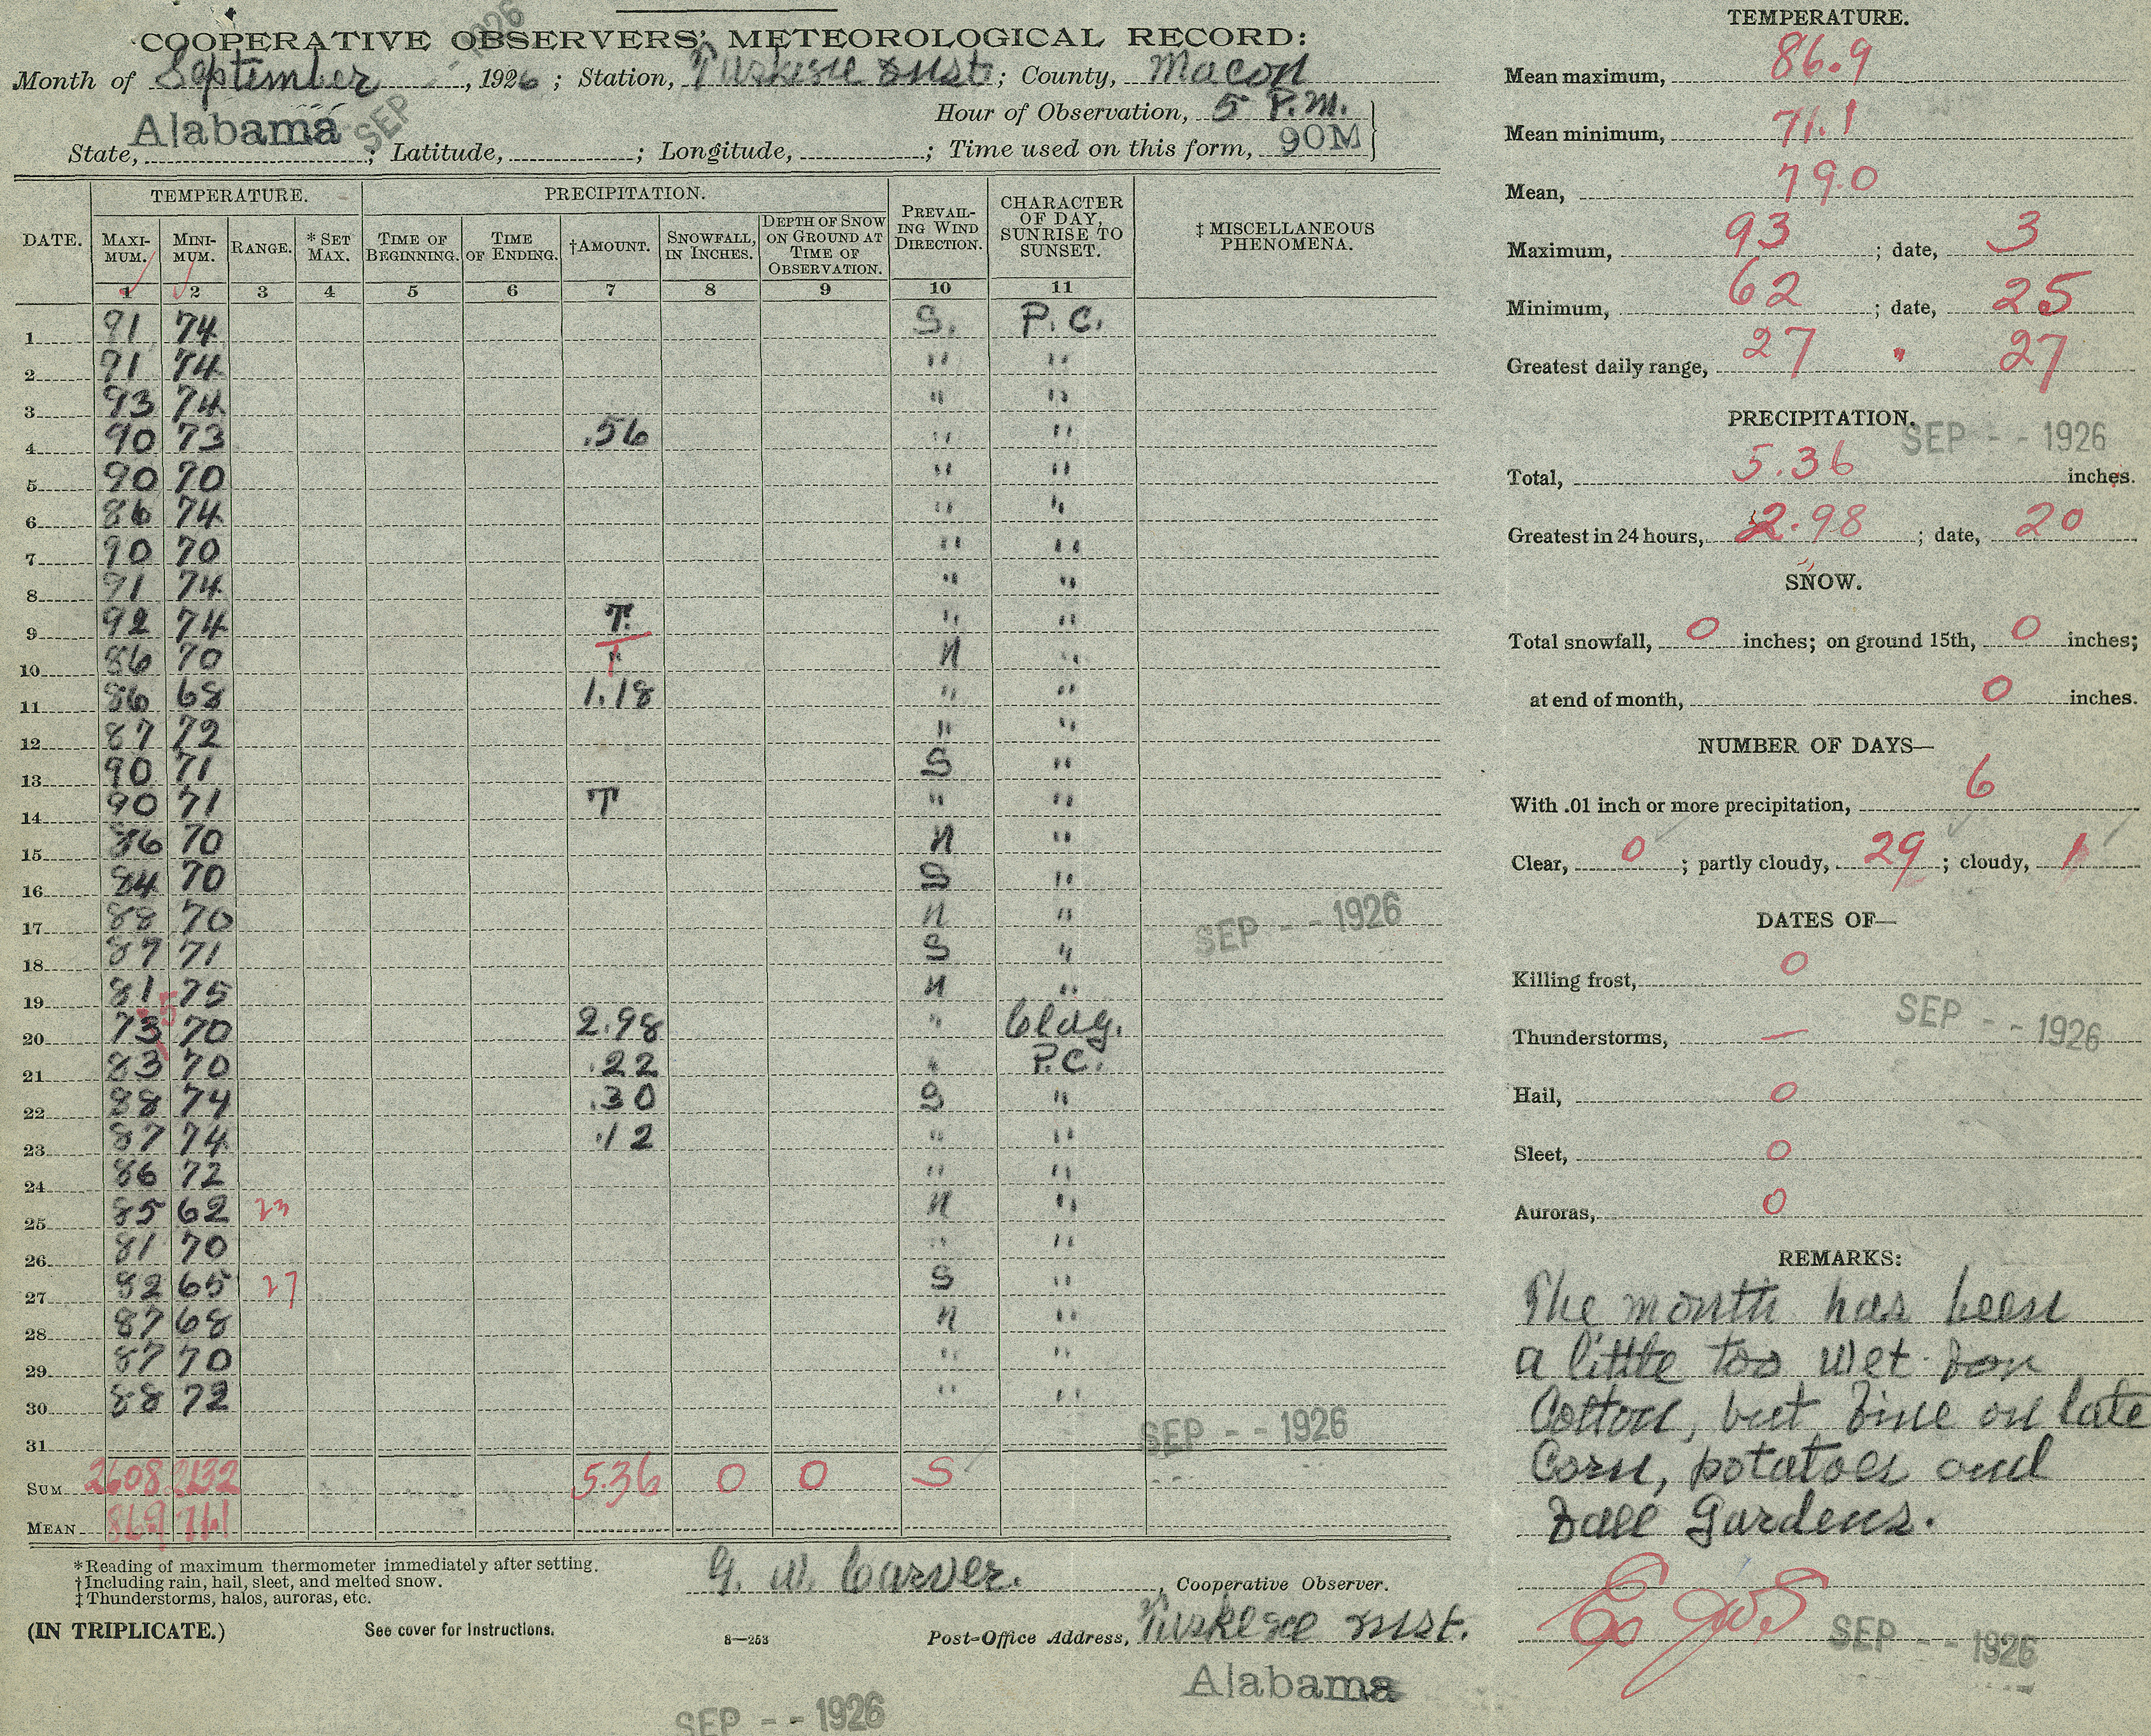 COOPERATIVE OBSERVERS' METEOROLOGICAL RECORD:
Month of September, 1926; Station, Tuskegee Inst.; County, Macon
Hour of Observation, 5 P.M.
State, Alabama; Latitude, ; Longitude, ; Time used on this form, 90M
SEP 1926
TEMPERATURE. PRECIPITATION.
DATE. MAXI-MUM. MINI-MUM. RANGE. *SET MAX. TIME OF BEGINNING. TIME OF ENDING. †AMOUNT. SNOWFALL, IN INCHES. DEPTH OF SNOW ON GROUND AT TIME OF OBSERVATION. PREVAIL-ING WIND DIRECTION. CHARACTER OF DAY, SUNRISE TO SUNSET. ‡ MISCELLANEOUS PHENOMENA.
1 2 3 4 5 6 7 8 9 10 11
1 91 74 S. P.C.
2 91 74 " "
3 93 74 " "
4 90 73 .56 " "
5 90 70 " "
6 86 74 " "
7 90 70 " "
8 91 74 " "
9 92 74 T. " "
10 86 70 T N "
11 86 68 1.18 " "
12 87 72 " "
13 90 71 S "
14 90 71 T " "
15 86 70 N "
16 84 70 S "
17 88 70 N "
18 87 71 S "
19 81 75 N "
20 73 70 2.98 " Cldy.
21 83 70 .22 " P.C.
22 88 74 .30 S "
23 87 74 .12 " "
24 86 72 " "
25 85 62 23 N "
26 81 70 " "
27 92 65 27 S "
28 87 68 N "
29 87 70 " "
30 88 72 " "
31
SUM 2608 2132 5.36 0 0 S
MEAN 86.9 71.1
SEP -- 1926
SEP -- 1926
*Reading of maximum thermometer immediately after setting.
†Including rain, hail, sleet, and melted snow.
‡Thunderstorms, halos, auroras, etc.
G. W. Carver., Cooperative Observer.
(IN TRIPLICATE.) See cover for Instructions. 8—253 Post-Office Address, Tuskegee Inst.
Alabama
SEP -- 1926
TEMPERATURE.
Mean maximum, 86.9
Mean minimum, 71.1
Mean, 79.0
Maximum, 93; date, 3
Minimum, 62; date, 25
Greatest daily range, 27 " 27
PRECIPITATION.
SEP -- 1926
Total, 5.36 inches.
Greatest in 24 hours, 2.98; date, 20
SNOW.
Total snowfall, 0 inches; on ground 15th, 0 inches;
at end of month, 0 inches.
NUMBER OF DAYS—
With .01 inch or more precipitation, 6
Clear, 0; partly cloudy, 29; cloudy, 1
DATES OF—
Killing frost, 0
SEP -- 1926
Thunderstorms, —
Hail, 0
Sleet, 0
Auroras, 0
REMARKS:
The month has been
a little too wet for
Cotton, but fine on late
Corn, potatoes and
Fall Gardens.
SEP -- 1926